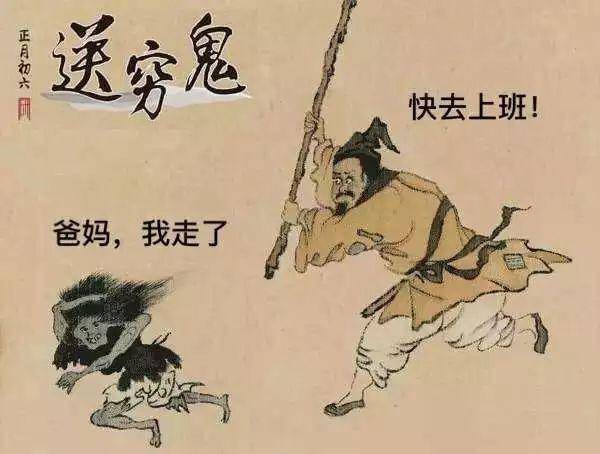 正月初六
送穷鬼
快去上班！
爸妈，我走了